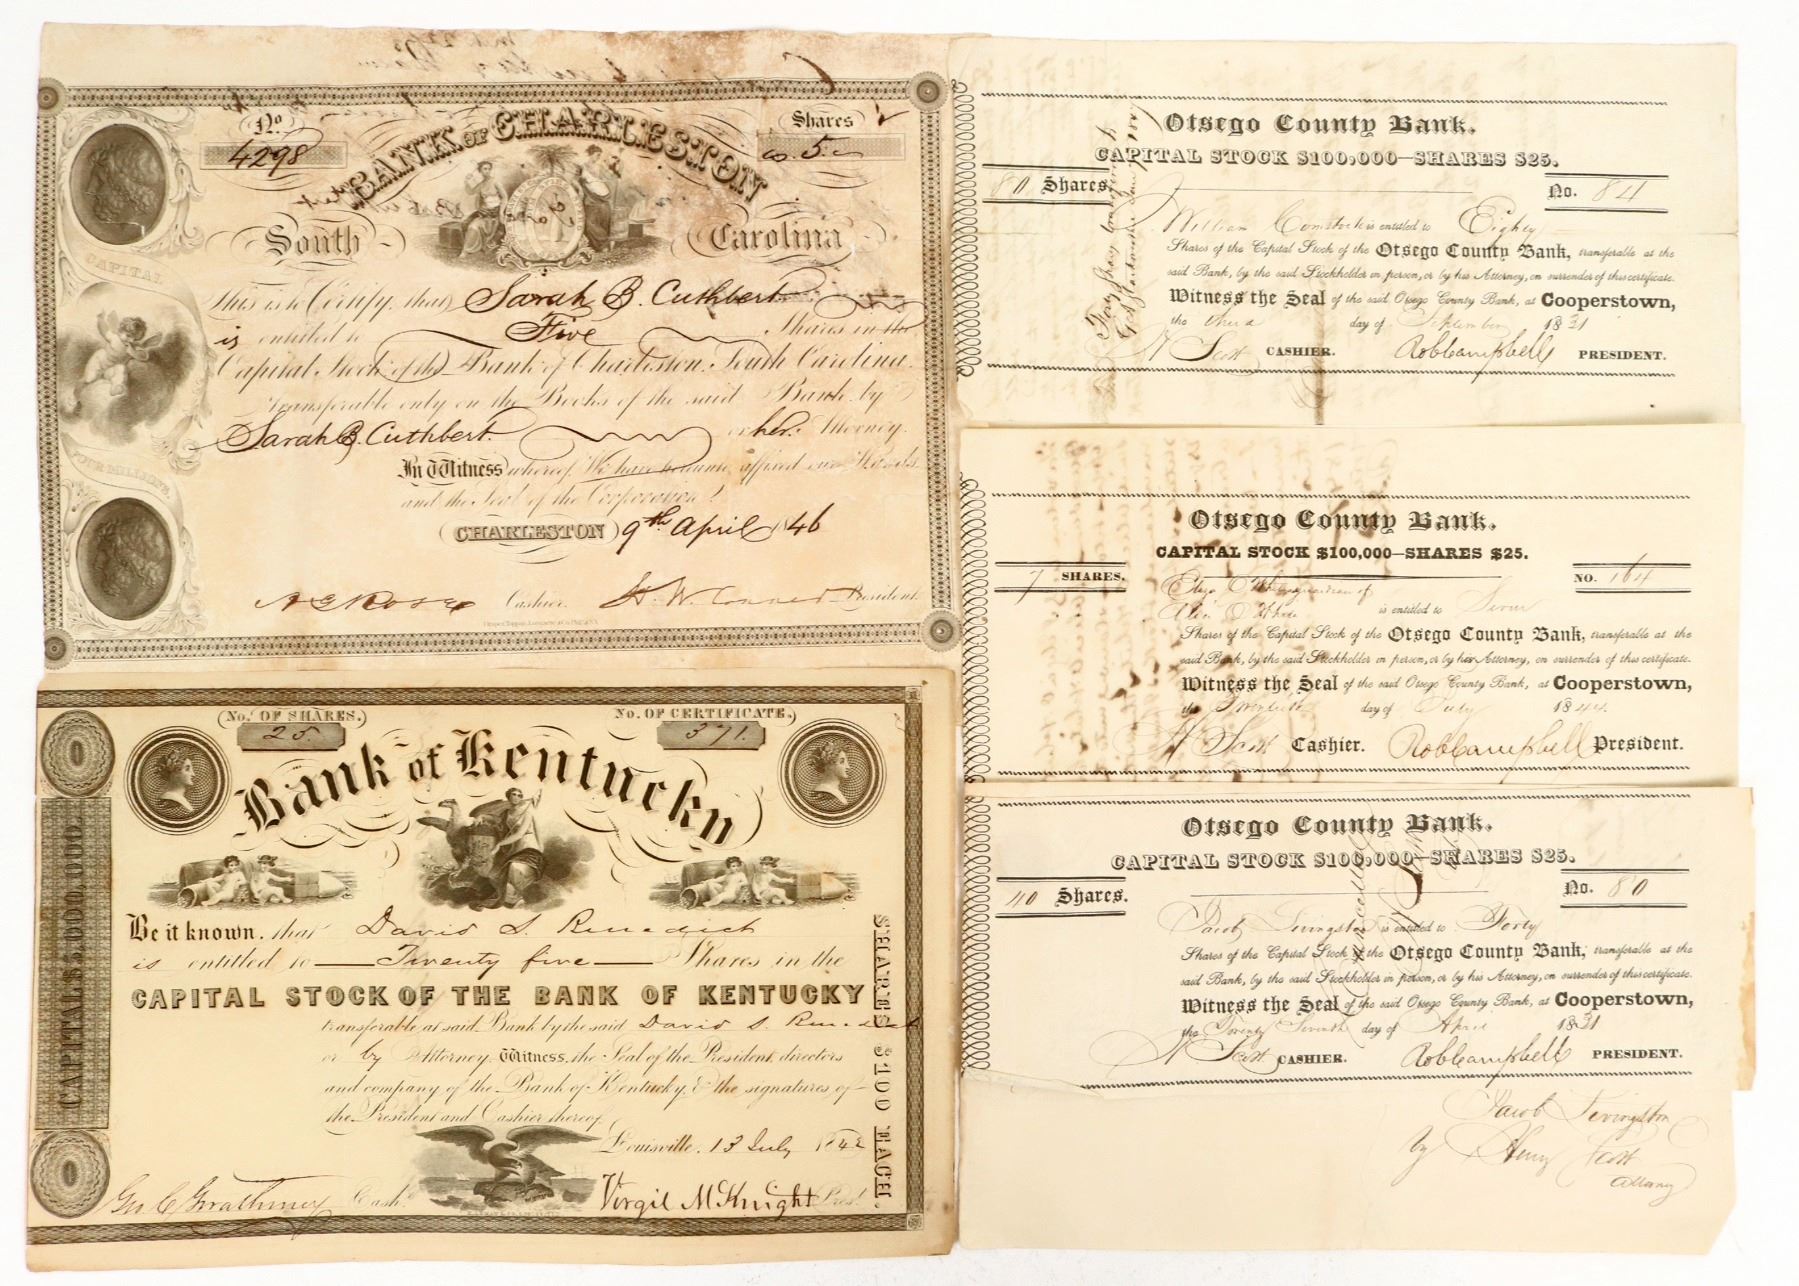 No.
4298
Shares
5
BANK OF CHARLESTON
South Carolina
CAPITAL
FOUR MILLIONS
This is to Certify, that Sarah B. Cuthbert
is entitled to Five Shares in the
Capital Stock of the Bank of Charleston, South Carolina.
transferable only on the Books of the said Bank by
Sarah B. Cuthbert or her Attorney.
In Witness whereof, We have hereunto affixed our Hands
and the Seal of the Corporation
CHARLESTON 9th April 1846
A G Rose Cashier. H. W. Conner President
No. OF SHARES.
25.
No. OF CERTIFICATE.
371.
Bank of Kentucky
CAPITAL $5,000,000.
SHARES $100 EACH.
Be it known, that David S. Benedict
is entitled to Twenty five Shares in the
CAPITAL STOCK OF THE BANK OF KENTUCKY
transferable at said Bank by the said David S. Benedict
or by Attorney. Witness, the Seal of the President, directors
and company of the Bank of Kentucky, & the signatures of
the President and Cashier thereof.
Louisville, 13 July 1842
Geo C Gwathmey Cash. Virgil McKnight Prest.
Otsego County Bank.
CAPITAL STOCK $100,000—SHARES $25.
80 Shares.
No. 84
William Comstock is entitled to Eighty
Shares of the Capital Stock of the Otsego County Bank, transferable at the
said Bank, by the said Stockholder in person, or by his Attorney, on surrender of this certificate.
Witness the Seal of the said Otsego County Bank, at Cooperstown,
the third day of September 1831
H Scott CASHIER. Rob Campbell PRESIDENT.
Otsego County Bank.
CAPITAL STOCK $100,000—SHARES $25.
7 SHARES.
NO. 164
guardian of
is entitled to Seven
Shares of the Capital Stock of the Otsego County Bank, transferable at the
said Bank, by the said Stockholder in person, or by his Attorney, on surrender of this certificate.
Witness the Seal of the said Otsego County Bank, at Cooperstown,
the day of July 1844
H Scott Cashier. Rob Campbell President.
Otsego County Bank.
CAPITAL STOCK $100,000—SHARES $25.
40 Shares.
No. 80
Cancelled
Jacob Livingston is entitled to Forty
Shares of the Capital Stock of the Otsego County Bank, transferable at the
said Bank, by the said Stockholder in person, or by his Attorney, on surrender of this certificate.
Witness the Seal of the said Otsego County Bank, at Cooperstown,
the Twenty Seventh day of April 1831
H Scott CASHIER. Rob Campbell PRESIDENT.
Jacob Livingston
by Henry Scott
Attorney